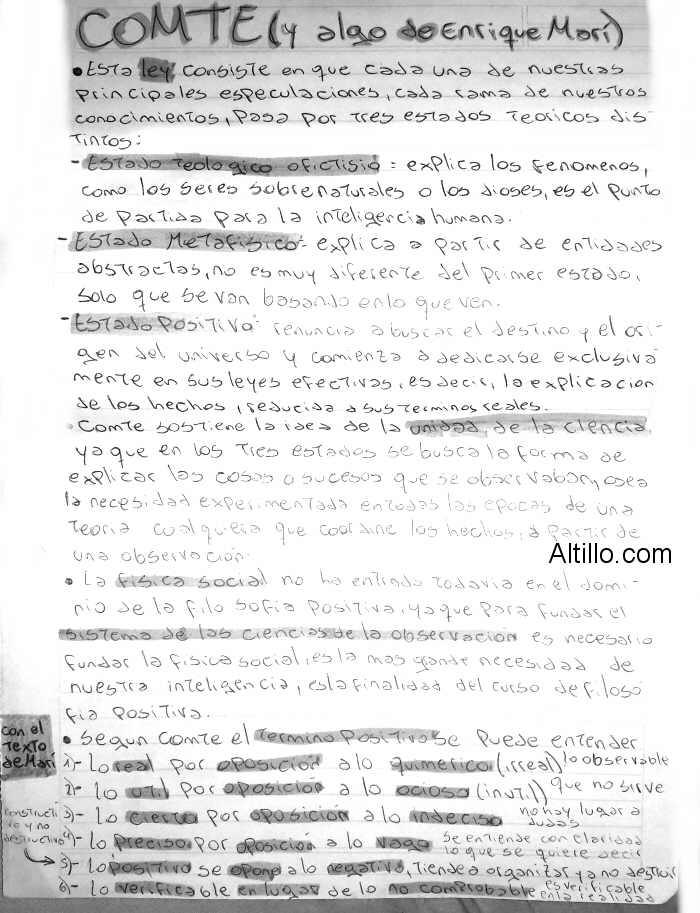 COMTE (y algo de Enrique Mari)
• Esta ley, consiste en que cada una de nuestras
principales especulaciones, cada rama de nuestros
conocimientos, pasa por tres estados teoricos dis-
tintos:
- Estado teologico o fictisio: explica los fenomenos,
como los seres sobrenaturales o los dioses, es el punto
de partida para la inteligencia humana.
- Estado Metafisico: explica a partir de entidades
abstractas, no es muy diferente del primer estado,
solo que se van basando en lo que ven.
- Estado Positivo: renuncia a buscar el destino y el ori-
gen del universo y comienza a dedicarse exclusiva
mente en sus leyes efectivas, es decir, la explicacion
de los hechos, reducida a sus terminos reales.
• Comte sostiene la idea de la unidad de la ciencia,
ya que en los tres estados se busca la forma de
explicar las cosas o sucesos que se observaban, osea
la necesidad experimentada en todas las epocas de una
teoria cualquiera que coordine los hechos, a partir de
una observación.
Altillo.com
• La fisica social no ha entrado todavia en el domi-
nio de la filosofia positiva, ya que para fundar el
sistema de las ciencias de la observación es necesario
fundar la fisica social, es la mas grande necesidad de
nuestra inteligencia, es la finalidad del curso de filoso
fia positiva.
con el
texto
de Mari
• Segun Comte el termino positivo se puede entender
1)- Lo real por oposición a lo quimerico (irreal) lo observable
2)- lo util por oposición a lo ocioso (inutil) que no sirve
3)- lo cierto por oposición a lo indeciso no hay lugar a
dudas
4)- lo preciso por oposición a lo vago se entiende con claridad
lo que se quiere decir
constructi
vo y no
destructivo
5)- lo positivo se opone a lo negativo, tiende a organizar ya no destruir
6)- lo verificable en lugar de lo no comprobable es verificable
en la realidad